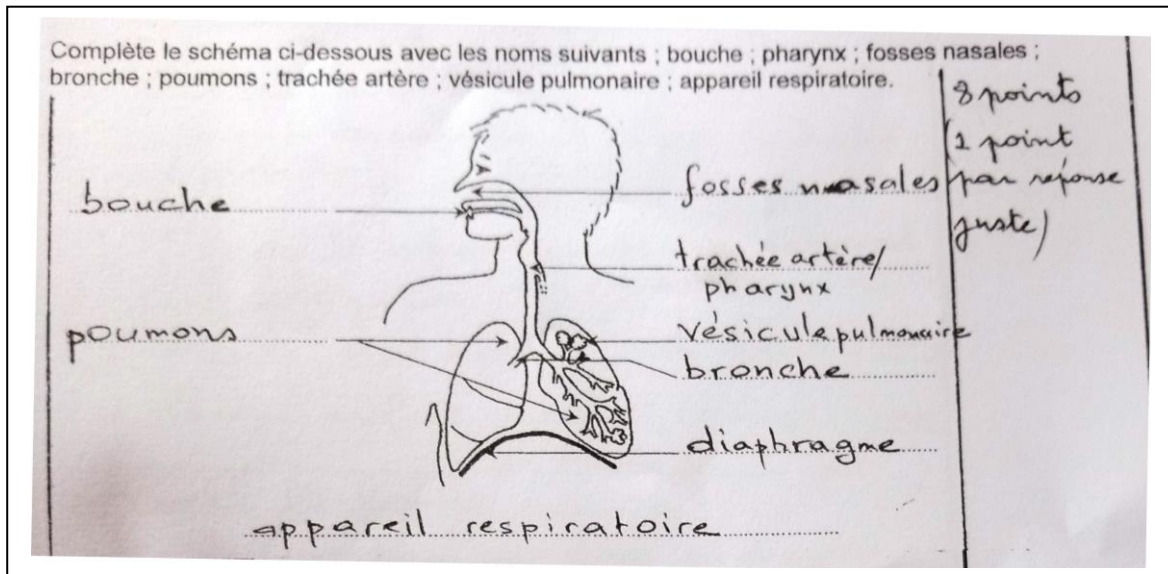 Complète le schéma ci-dessous avec les noms suivants ; bouche ; pharynx ; fosses nasales ;
bronche ; poumons ; trachée artère ; vésicule pulmonaire ; appareil respiratoire.
8 points
(1 point
par réponse
juste)
bouche
fosses nasales
trachée artère/
pharynx
poumons
vésicule pulmonaire
bronche
diaphragme
appareil respiratoire